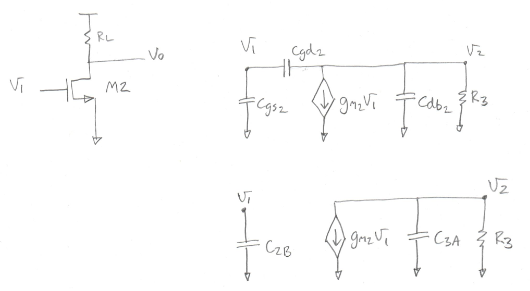 RL
Vo
V1
M2
V1
Cgd2
V2
Cgs2
gm2V1
Cdb2
R3
V1
V2
C2B
gm2V1
C3A
R3